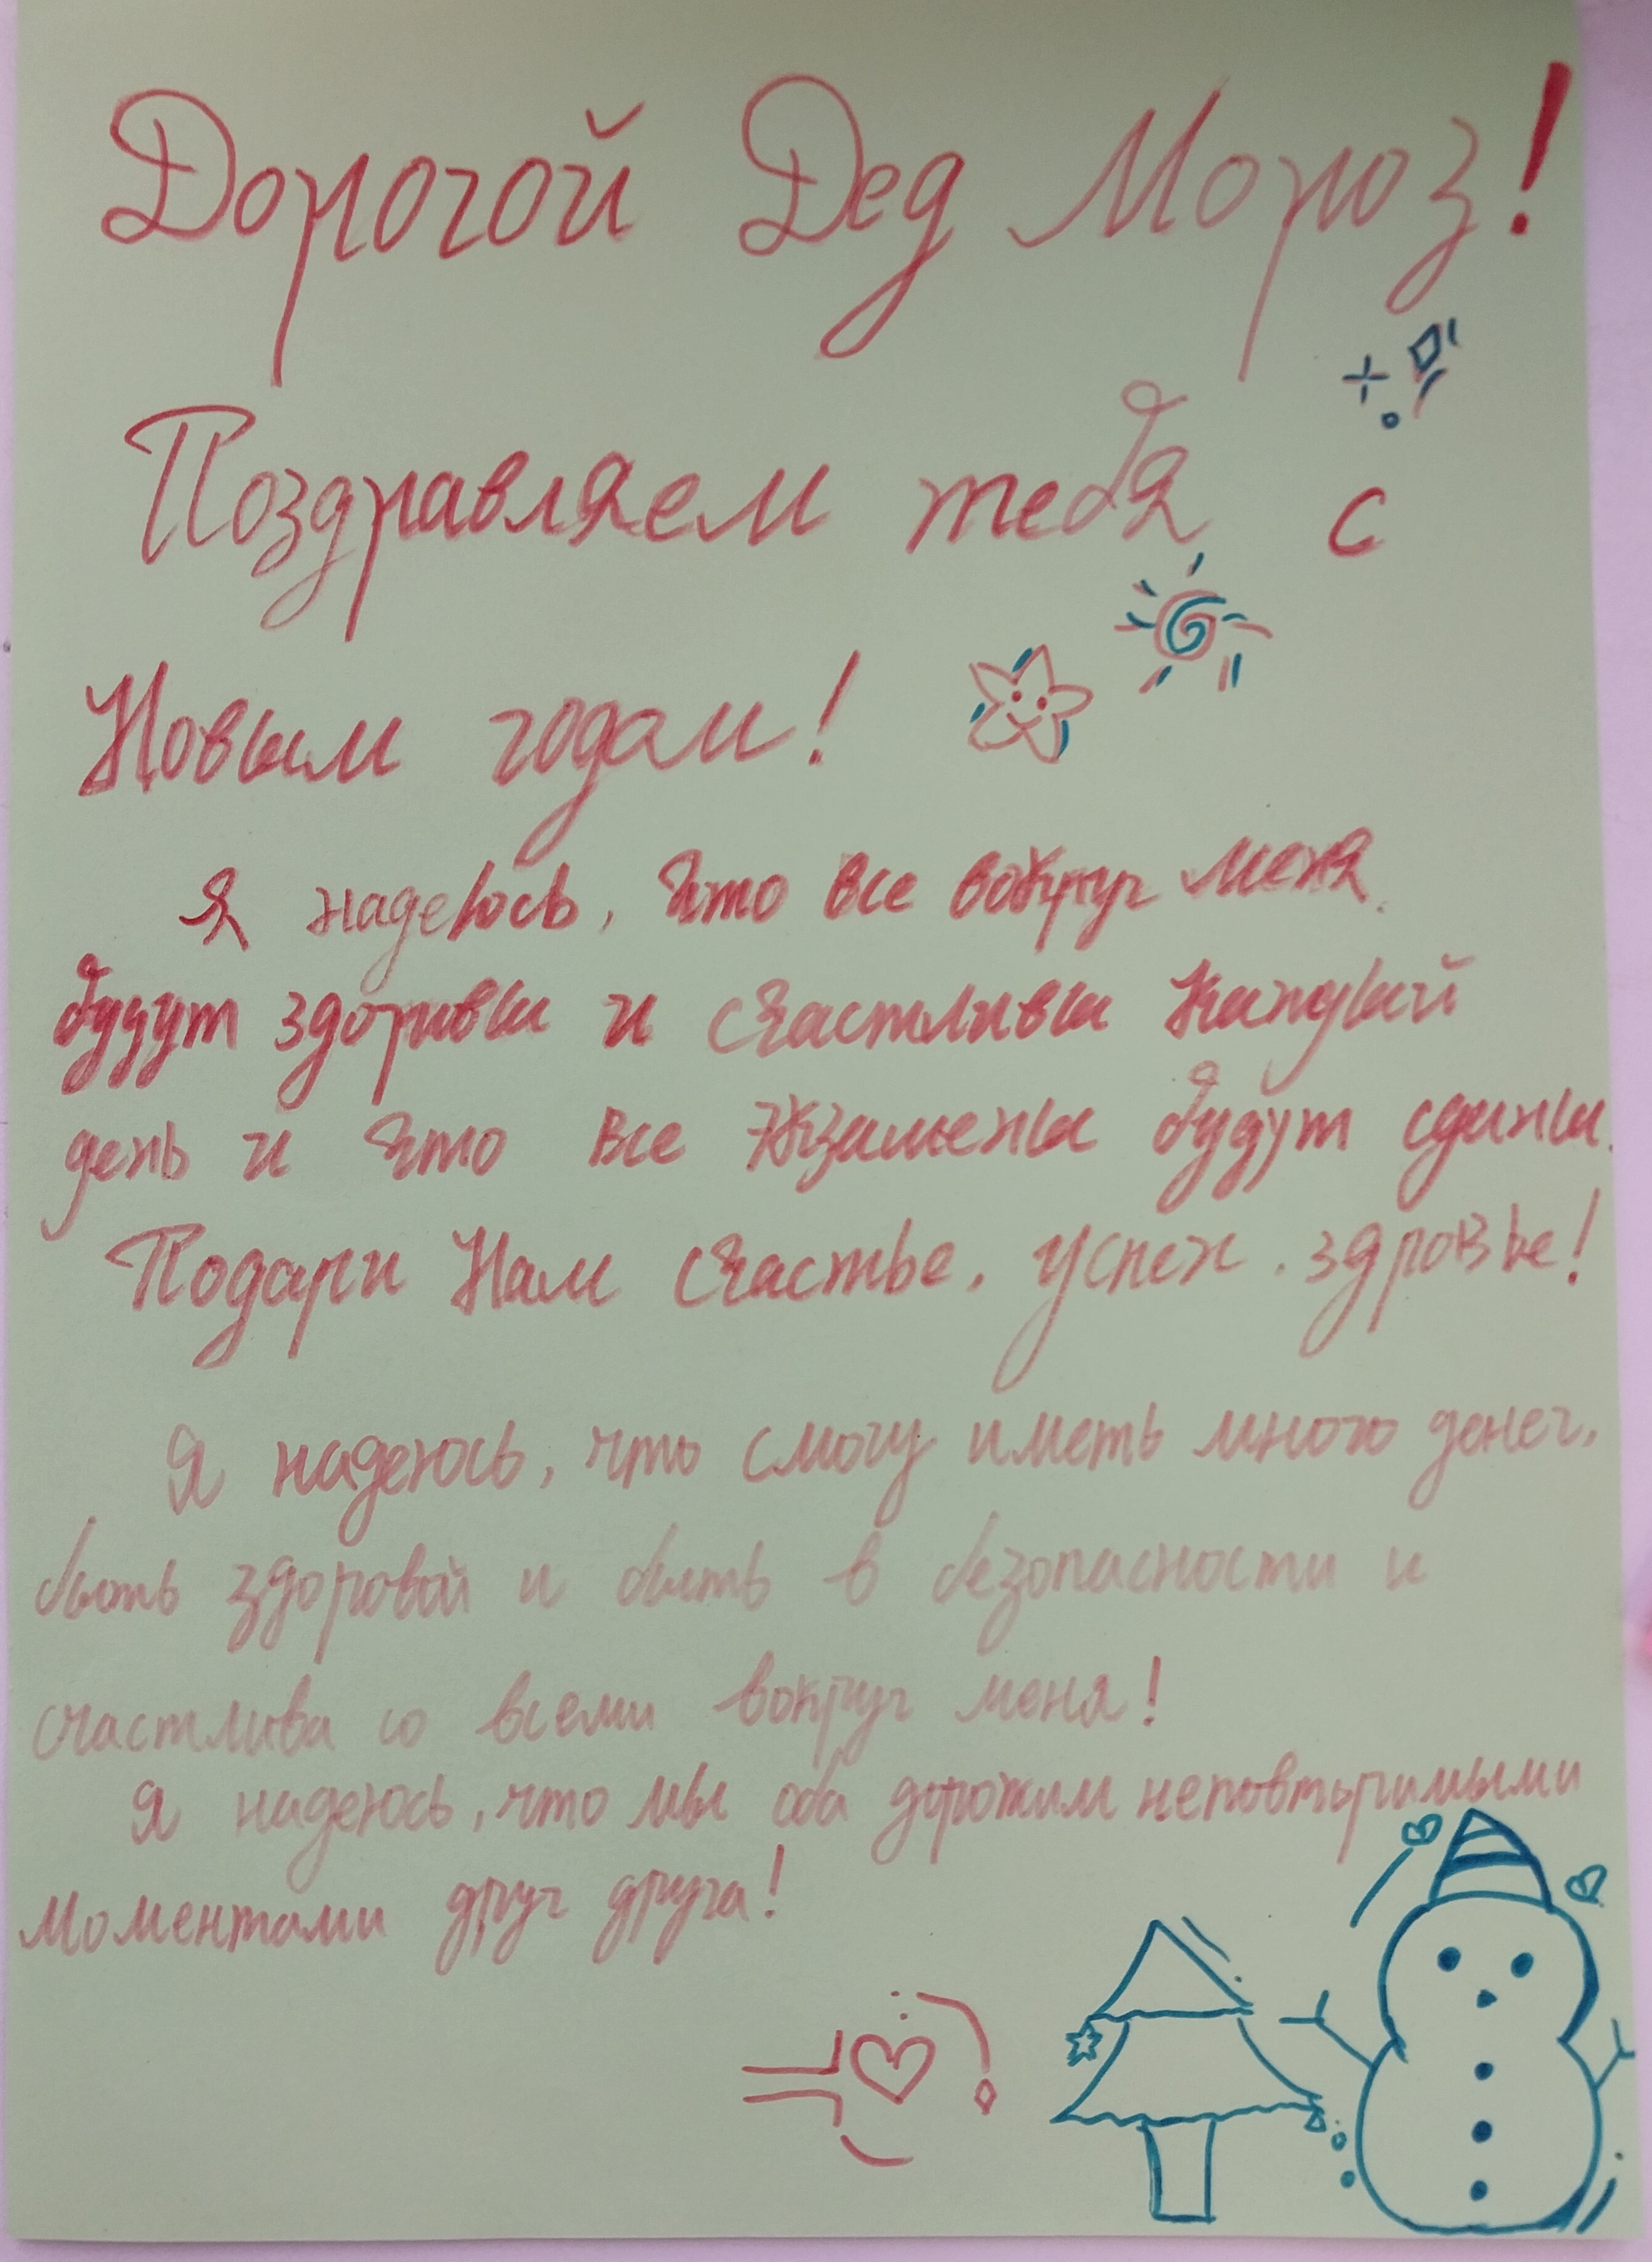 Дорогой Дед Мороз!
Поздравляем тебя с
Новым годам!
Я надеюсь, что все вокруг меня
будут здоривы и счастливы каждый
день и что все экзамены будут сданы.
Подари Нам счастье, успех, здровье!
Я надеюсь, что смогу иметь много денег,
быть здоровой и быть в безопасности и
счастлива со всеми вокруг меня!
Я надеюсь, что мы оба дорожим неповторимыми
моментами друг друга!